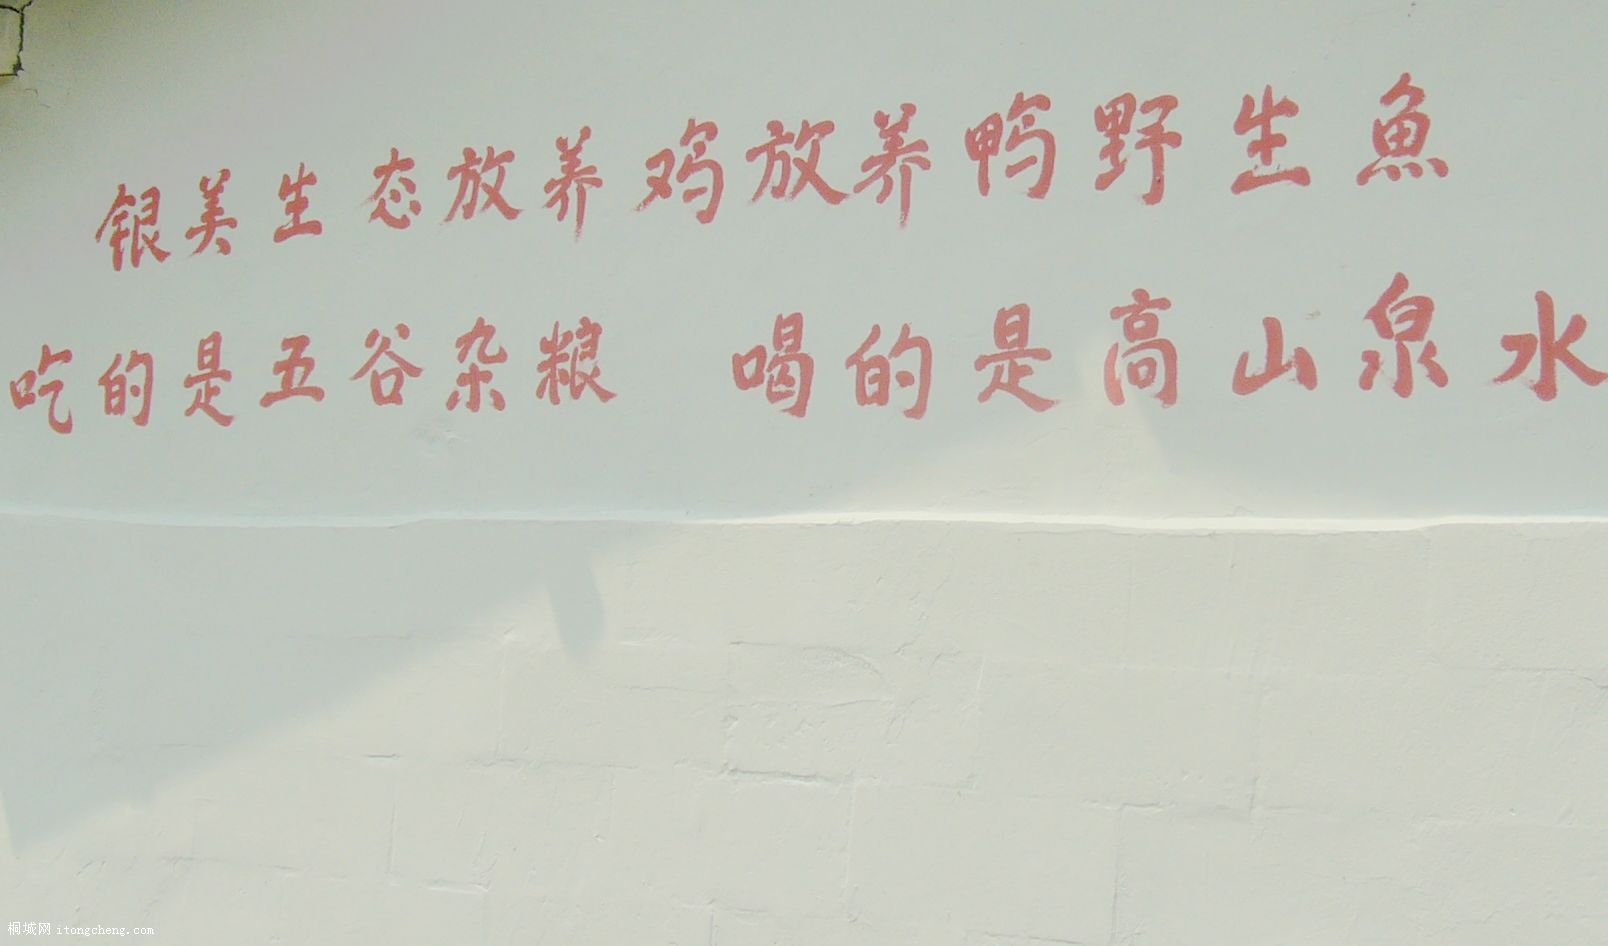 银美生态放养鸡放养鸭野生魚
吃的是五谷杂粮 喝的是高山泉水
桐城网 itongcheng.com